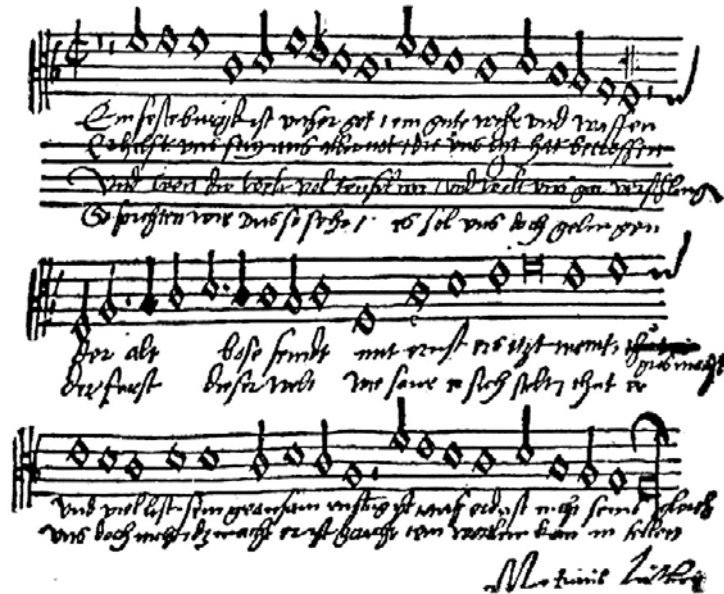 Ein feste burgk ist unser got, ein gute wehr und waffen
Er hilfft uns frey aus aller not die uns itzt hat betroffen
Und wen die welt vol teufel und wolt uns gar verschling
So furchten wir uns so sehr, es sol uns doch gelingen
der alt bose feindt mit ernst ers itzt meint, gros macht
der furst dieser welt wie saur er sich stelt, thut er
und viel list sein grausam rustung ist auf erd ist nicht seins gleich
uns doch nicht dz macht er ist gericht ein wortlin kan in fellen
Martinus Luther